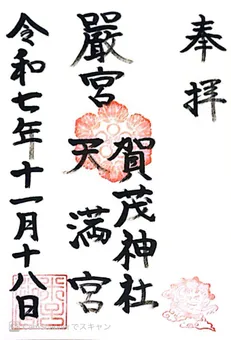 奉拝
賀茂神社
嚴宮 天満宮
令和七年十一月十八日
でスキャン